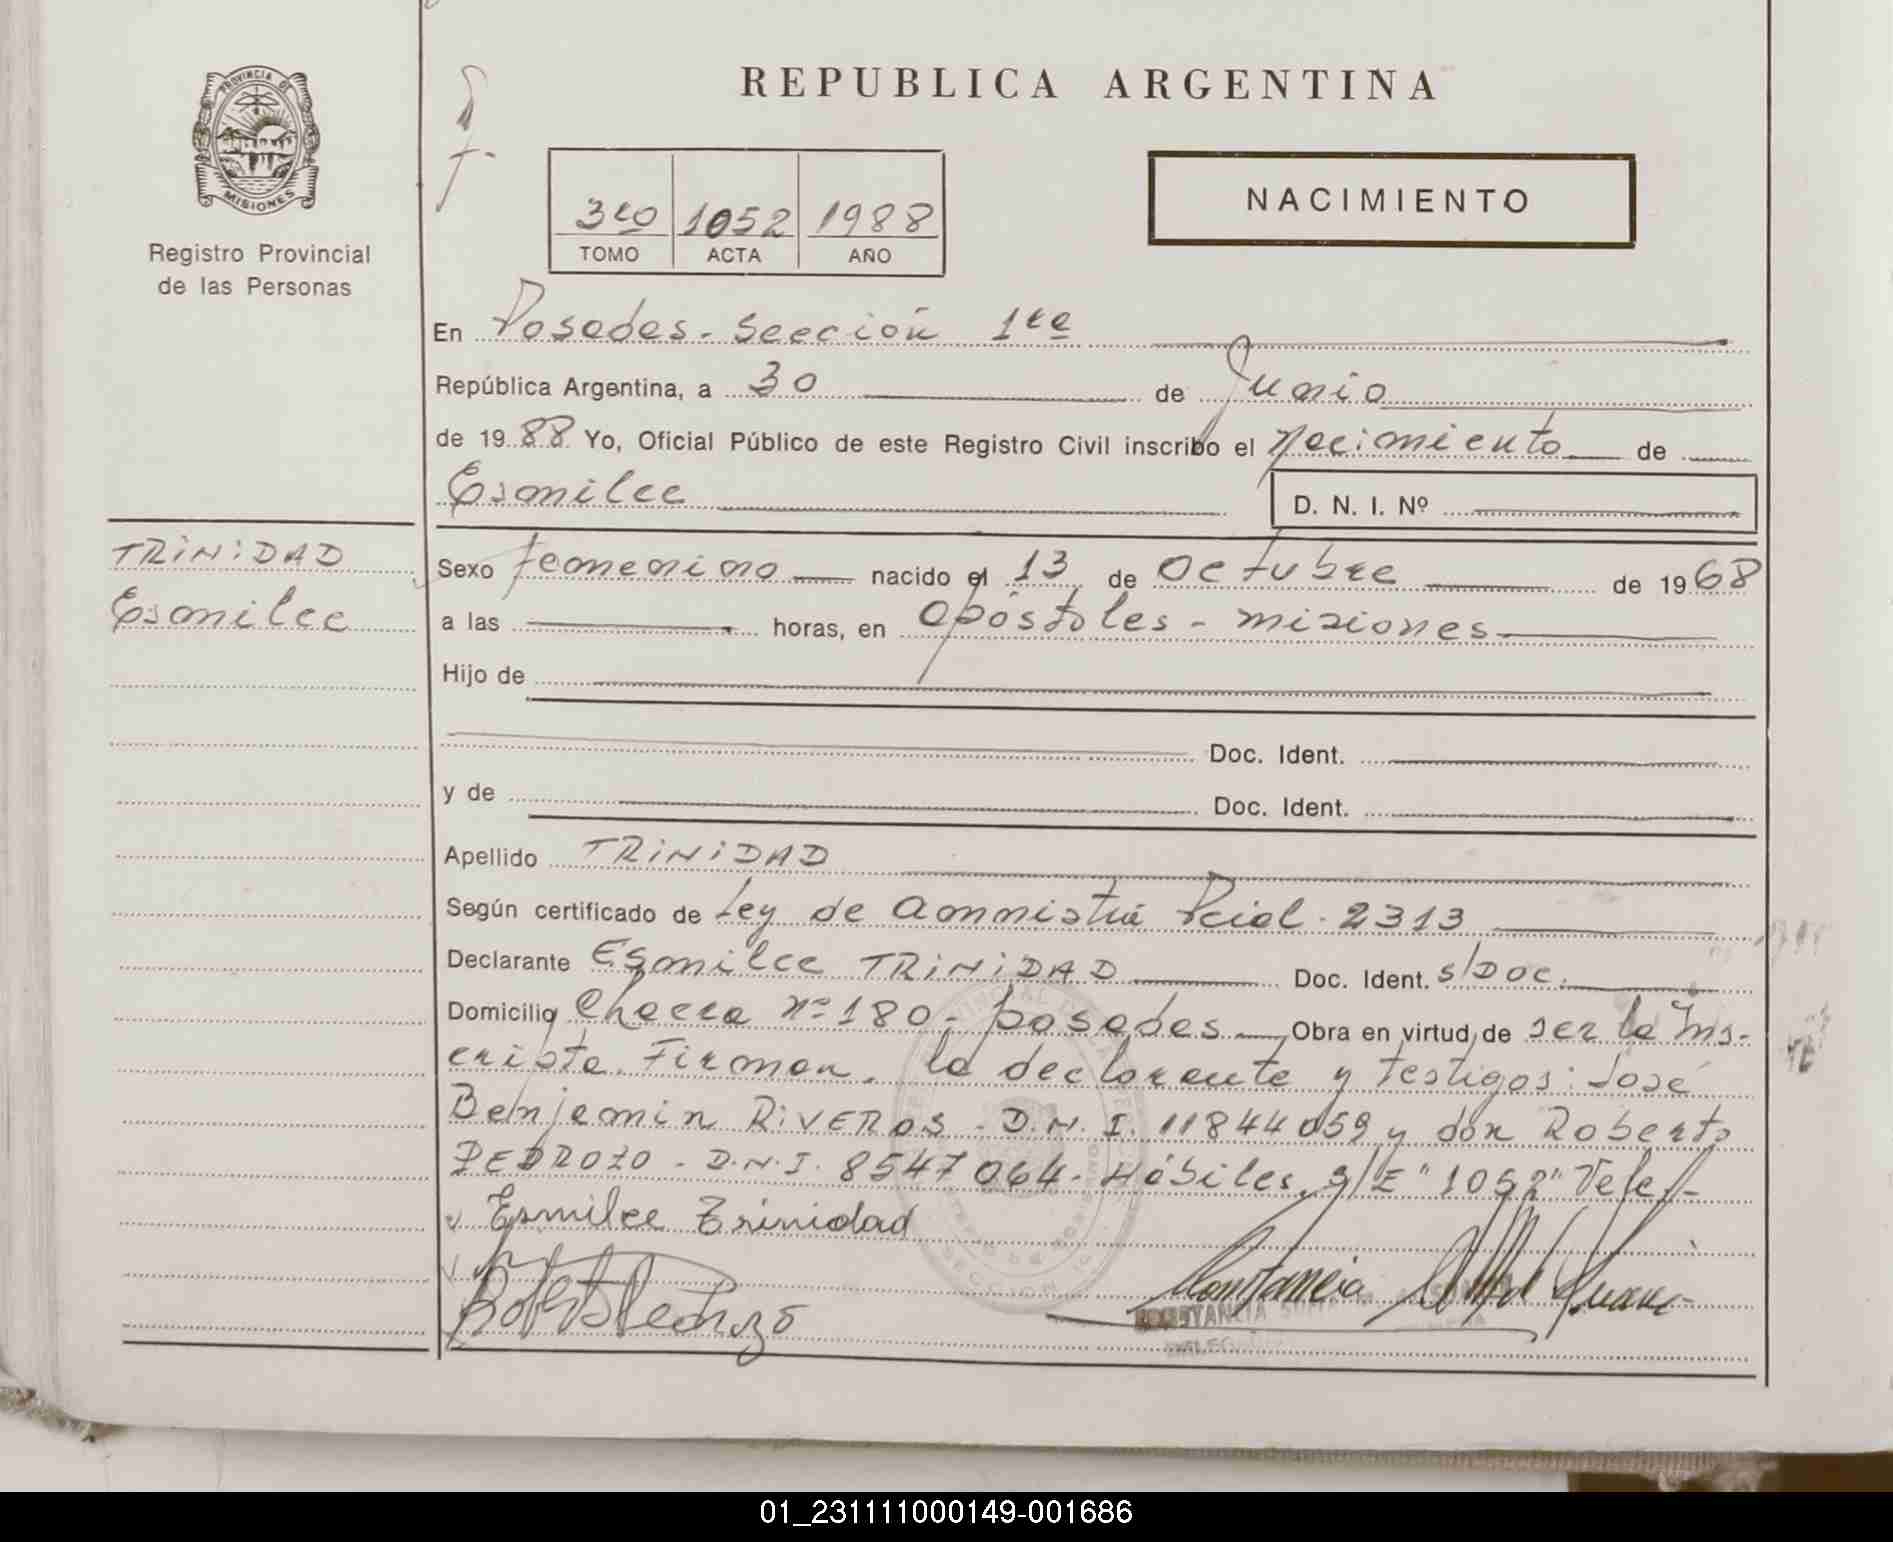 REPUBLICA ARGENTINA
PROVINCIA DE
MISIONES
Registro Provincial
de las Personas
3ro 1052 1988
TOMO ACTA AÑO
NACIMIENTO
En Posadas - Sección 1ra
República Argentina, a 30 de Junio
de 1988 Yo, Oficial Público de este Registro Civil inscribo el nacimiento de
Esmilce
D. N. I. Nº
TRINIDAD
Esmilce
Sexo femenino nacido el 13 de Octubre de 1968
a las horas, en Apóstoles - Misiones
Hijo de
Doc. Ident.
y de Doc. Ident.
Apellido TRINIDAD
Según certificado de Ley de Amnistía Pcial. 2313
Declarante Esmilce TRINIDAD Doc. Ident. s/Doc.
Domicilio Chacra nº 180 - Posadas Obra en virtud de ser la ins-
cripta. Firman, la declarante y testigos: José
Benjamin RIVEROS - D.N.I. 11844059 y don Roberto
PEDROZO - D.N.I. 8547064 - Hábiles. S/E "1052" Vale.-
Esmilce Trinidad
Roberto Pedrozo
Constancia
CONSTANCIA
SECCION
01_231111000149-001686